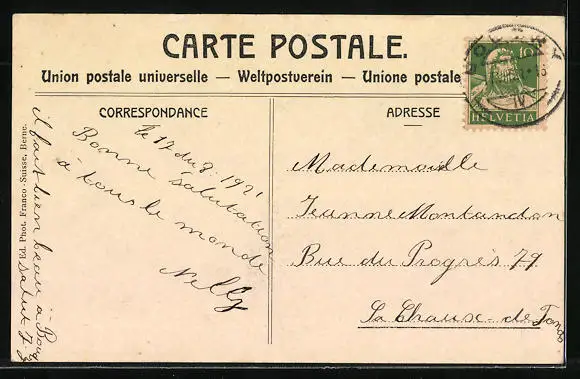 CARTE POSTALE.
Union postale universelle — Weltpostverein — Unione postale
10
HELVETIA
CORRESPONDANCE
ADRESSE
le 17 du 8. 1921
Bonne salutation
à tous le monde
Nelly
il fait bien beau à
salut
Ed. Phot. Franco-Suisse, Berne.
Mademoiselle
Jeanne Montandon
Rue du Progrès 79
La Chause-de-Fonds